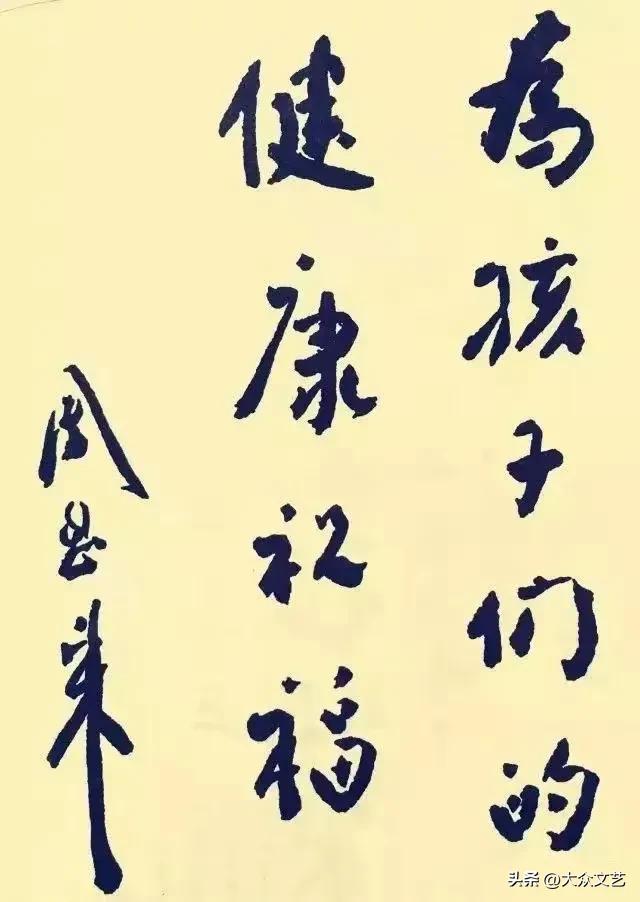 為孩子们的
健康祝福
周恩来
头条 @大众文艺